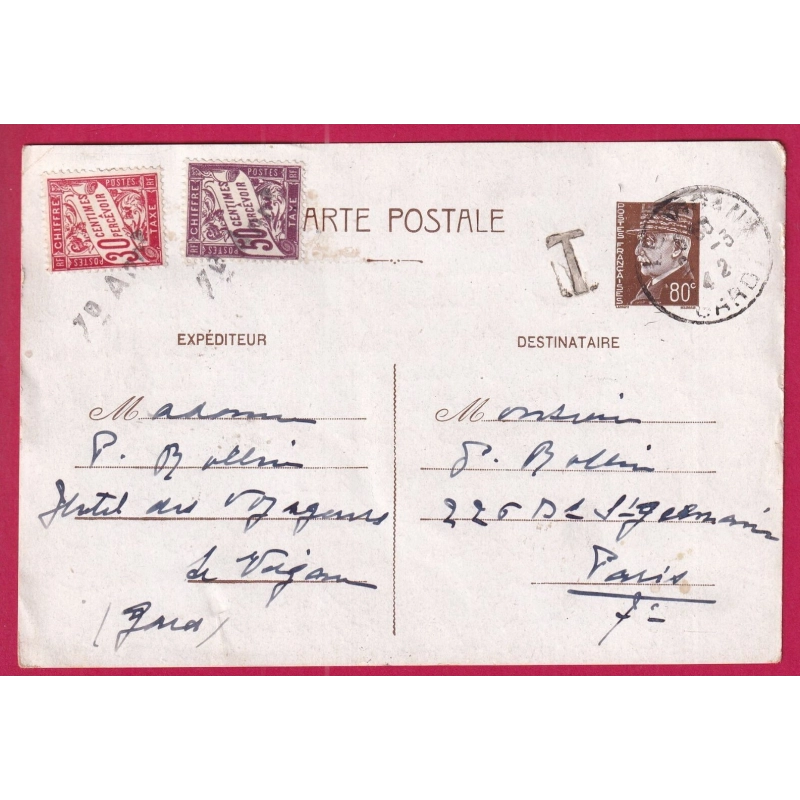 CHIFFRE TAXE
POSTES RF
30 CENTIMES À PERCEVOIR
CHIFFRE TAXE
POSTES RF
50 CENTIMES PERCEVOIR
ARTE POSTALE
T
POSTES FRANÇAISES
80c
42
GARD
EXPÉDITEUR
Madame
P. Rollin
Hotel des Voyageurs
Le Vigan
(Gard)
DESTINATAIRE
Monsieur
P. Rollin
226 Bd St Germain
Paris
7e